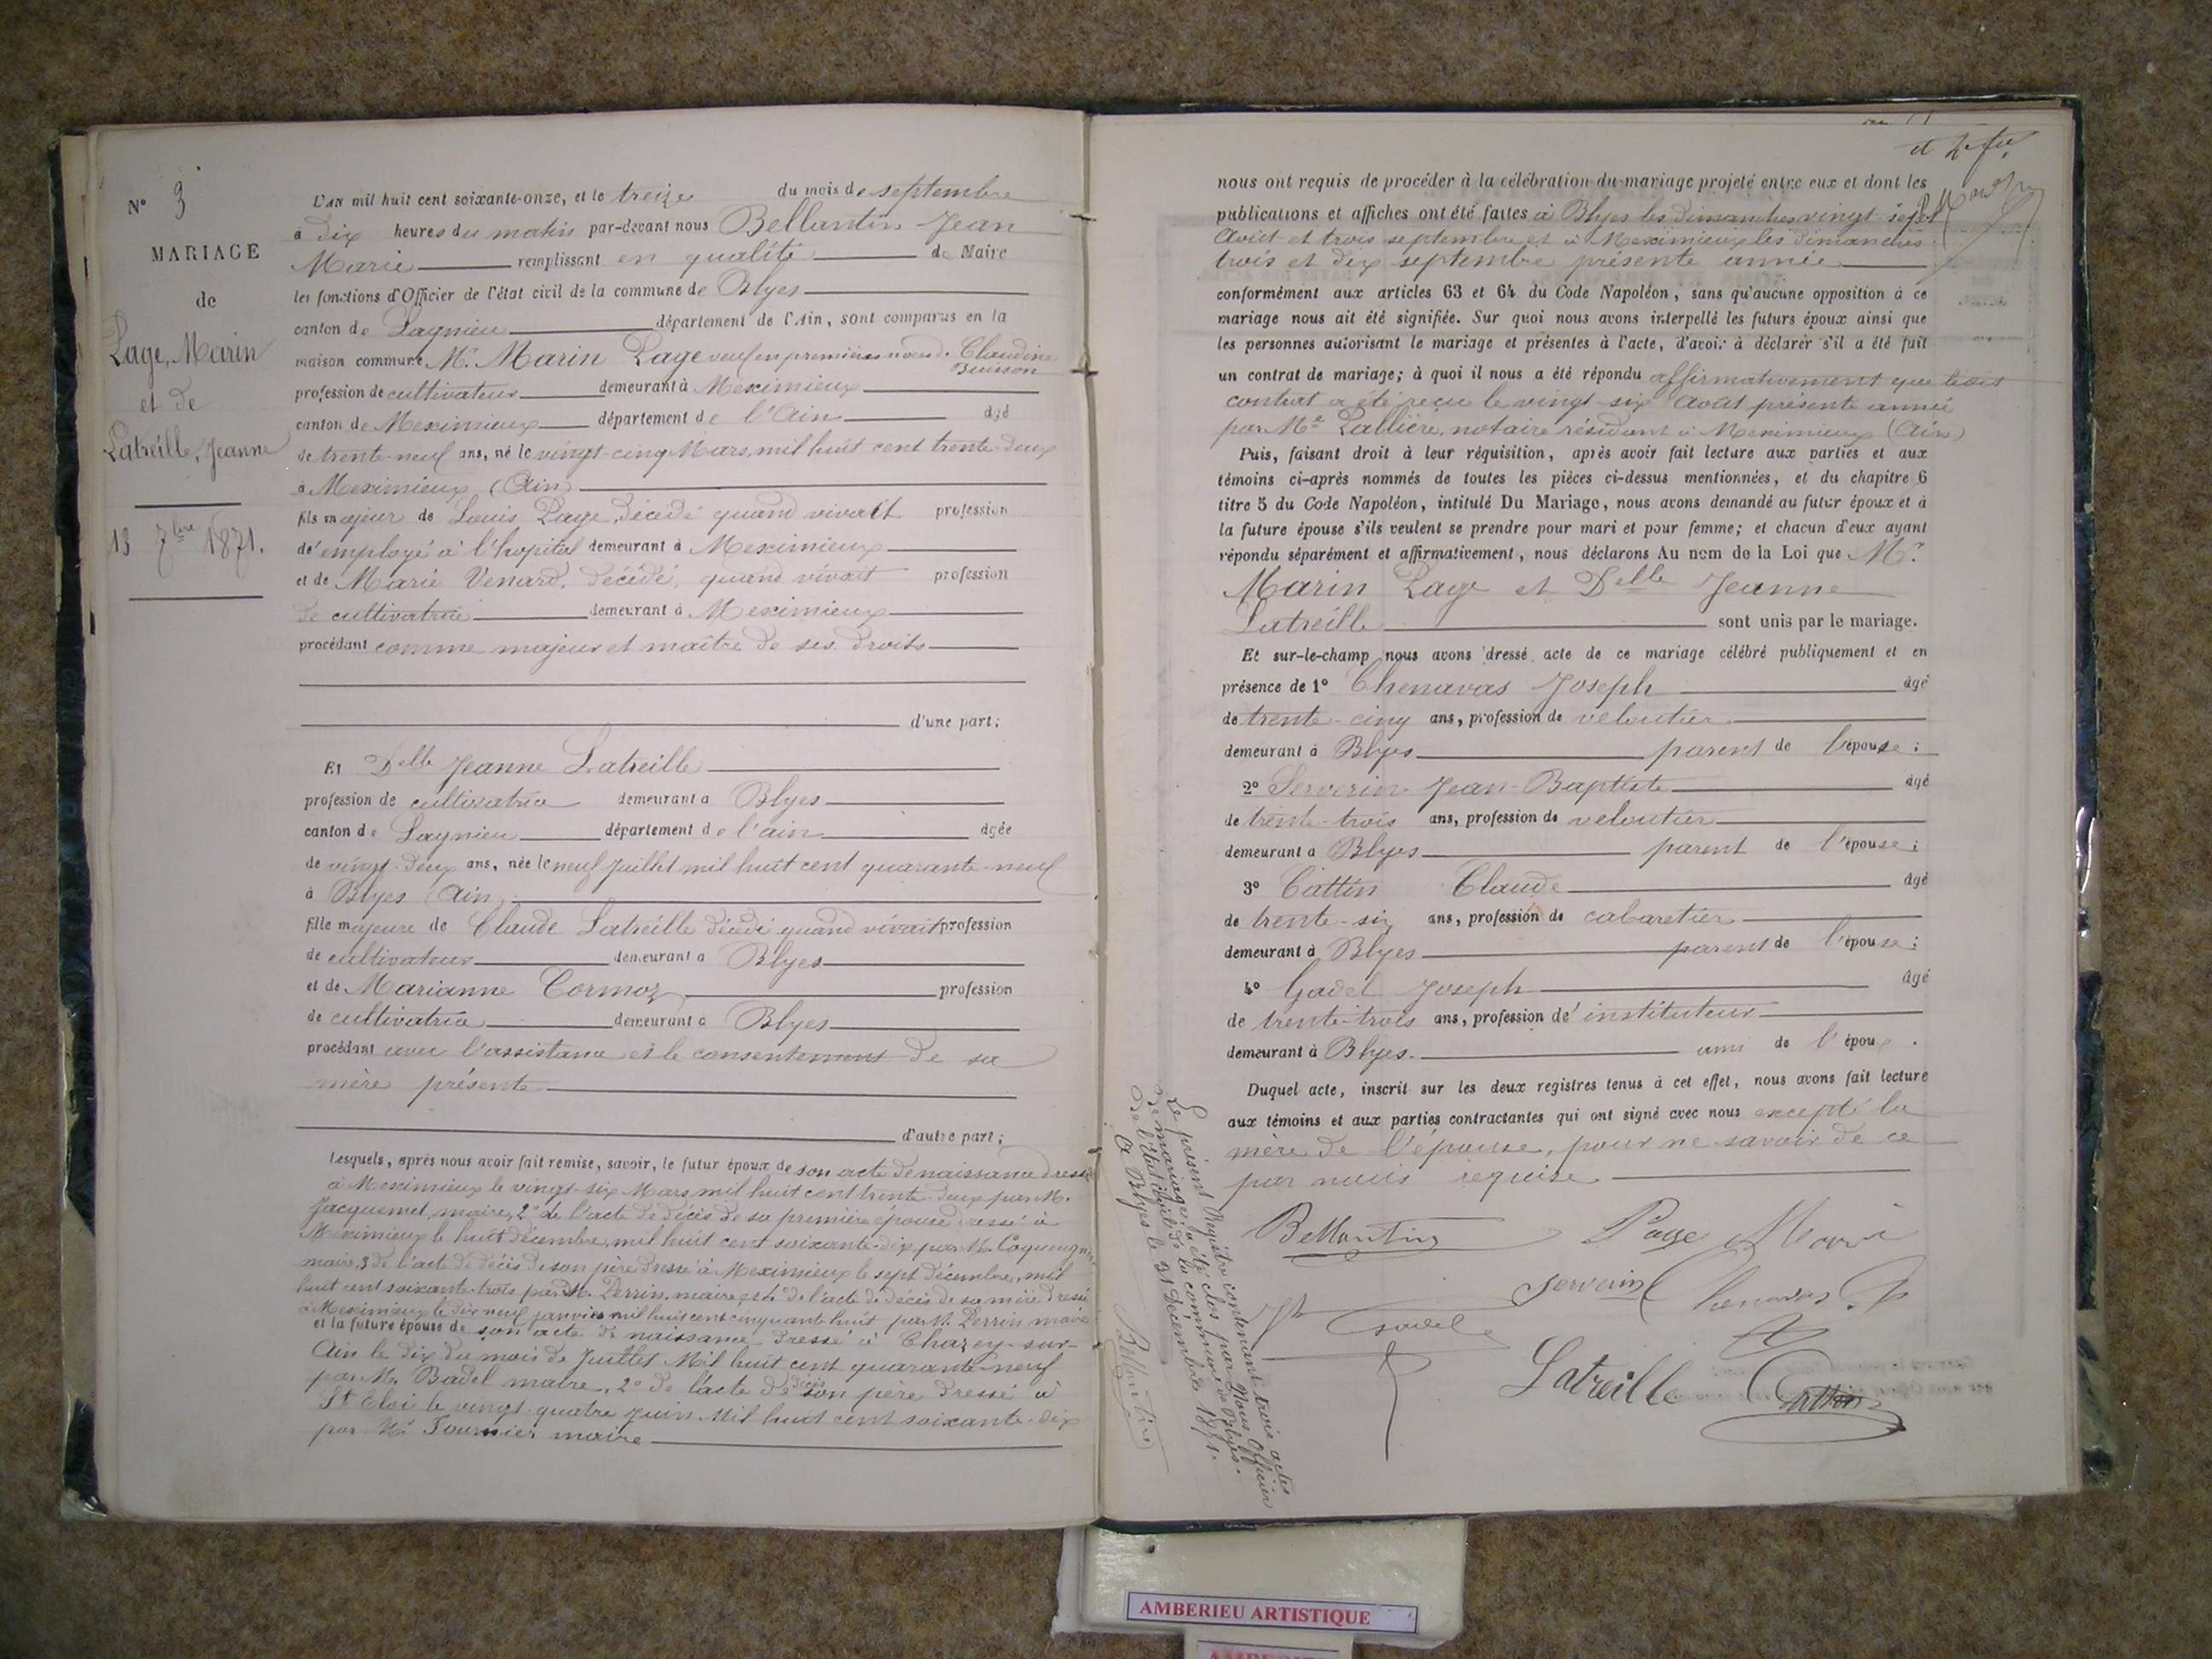 N° 3
MARIAGE
de
Page, Marin
et de
Latreille, Jeanne
13 7bre 1871.
L'AN mil huit cent soixante-onze, et le treize du mois de septembre
à dix heures du matin par-devant nous Bellontin Jean
Marie remplissant en qualité de Maire
les fonctions d'Officier de l'état civil de la commune de Blyes
canton de Lagnieu département de l'Ain, sont comparus en la
maison commune Mr. Marin Page veuf en premières noces de Claudine
Buisson
profession de cultivateur demeurant à Meximieux
canton de Meximieux département de l'Ain âgé
de trente-neuf ans, né le vingt-cinq Mars, mil huit cent trente-deux
à Meximieux (Ain)
fils majeur de Louis Page, décédé quand vivait profession
d'employé à l'hopital demeurant à Meximieux
et de Marie Venard, décédé, quand vivait profession
de cultivatrice demeurant à Meximieux
procédant comme majeur et maître de ses droits
d'une part;
Et Delle Jeanne Latreille
profession de cultivatrice demeurant à Blyes
canton de Lagnieu département de l'ain âgée
de vingt-deux ans, née le neuf Juillet mil huit cent quarante-neuf
à Blyes (Ain)
fille majeure de Claude Latreille décédé quand vivait profession
de cultivateur demeurant à Blyes
et de Marianne Cormoz profession
de cultivatrice demeurant à Blyes
procédant avec l'assistance et le consentement de sa
mère présente
d'autre part;
Lesquels, après nous avoir fait remise, savoir, le futur époux de son acte de naissance dressé
à Meximieux le vingt-six Mars mil huit cent trente-deux par M.
Jacquemet, maire, 2° de l'acte de décès de sa première épouse dressé à
Meximieux le huit décembre, mil huit cent soixante-dix par M.
maire, 3 de l'acte de décès de son père dressé à Meximieux le sept décembre, mil
huit cent soixante-trois par M. Perrin, maire, et 4° de l'acte de décès de sa mère dressé
à Meximieux le dix neuf janvier mil huit cent cinquante huit par M. Perrin maire
et la future épouse de son acte de naissance dressé à Chazey-sur-
Ain le dix du mois de Juillet Mil huit cent quarante-neuf
par M. Badel maire, 2° de l'acte de décès son père dressé à
St Eloi le vingt-quatre Juin Mil huit cent soixante-dix
par Mr Fournier maire
nous ont requis de procéder à la célébration du mariage projeté entre eux et dont les
publications et affiches ont été faites à Blyes les dimanches vingt-sept
Août et trois septembre et à Meximieux les dimanches
trois et dix septembre présente année
conformément aux articles 63 et 64 du Code Napoléon, sans qu'aucune opposition à ce
mariage nous ait été signifiée. Sur quoi nous avons interpellé les futurs époux ainsi que
les personnes autorisant le mariage et présentes à l'acte, d'avoir à déclarer s'il a été fait
un contrat de mariage; à quoi il nous a été répondu affirmativement que
contrat a été reçu le vingt-six Août présente année
par Me Pallière, notaire résidant à Meximieux (Ain)
Puis, faisant droit à leur réquisition, après avoir fait lecture aux parties et aux
témoins ci-après nommés de toutes les pièces ci-dessus mentionnées, et du chapitre 6
titre 5 du Code Napoléon, intitulé Du Mariage, nous avons demandé au futur époux et à
la future épouse s'ils veulent se prendre pour mari et pour femme; et chacun d'eux ayant
répondu séparément et affirmativement, nous déclarons Au nom de la Loi que Mr.
Marin Page et Delle Jeanne
Latreille sont unis par le mariage.
Et sur-le-champ nous avons dressé acte de ce mariage célébré publiquement et en
présence de 1° Chenavas Joseph âgé
de trente-cinq ans, profession de veloutier
demeurant à Blyes parent de l'épouse;
2° Serverin Jean-Baptiste âgé
de trente-trois ans, profession de veloutier
demeurant à Blyes parent de l'épouse;
3° Cattin Claude âgé
de trente-six ans, profession de cabaretier
demeurant à Blyes parent de l'épouse;
4° Gadel Joseph âgé
de trente-trois ans, profession d'instituteur
demeurant à Blyes. ami de l'époux.
Duquel acte, inscrit sur les deux registres tenus à cet effet, nous avons fait lecture
aux témoins et aux parties contractantes qui ont signé avec nous excepté la
mère de l'épouse, pour ne savoir de ce
par nous requise
Bellontin Page Marin
Serverin Chenavas
Jh Gadel
Latreille Cattin
Le présent Registre contenant trois actes
de mariage, a été clos par Nous Officier
de l'état civil de la commune de Blyes.
A Blyes le 31 Décembre 1871.
Bellontin
AMBERIEU ARTISTIQUE